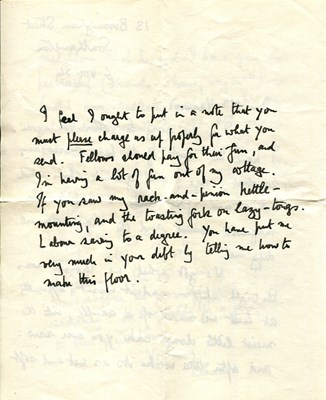 I feel I ought to put in a note that you
must please charge us up properly for what you
send. Fellows should pay for their fun, and
I'm having a lot of fun out of my cottage.
If you saw my rack-and-pinion kettle-
mounting, and the toasting fork on lazy-tongs.
Labour saving to a degree. You have put me
very much in your debt by telling me how to
make this floor.